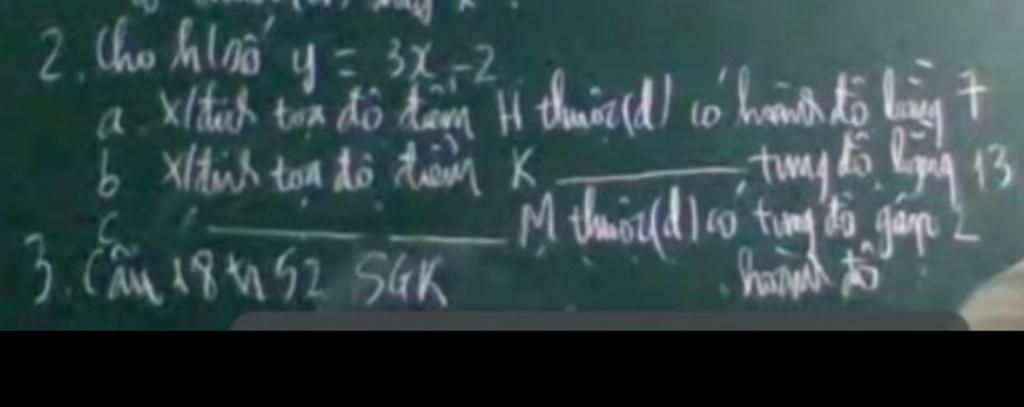 2. Cho h/số y = 3x - 2
a. X/định tọa độ điểm H thuộc (d) có hoành độ bằng 7
b X/định tọa độ điểm K ———— tung độ bằng 13
c ———— ———— M thuộc (d) có tung độ gấp 2
hoành độ
3. Câu 18 52 SGK